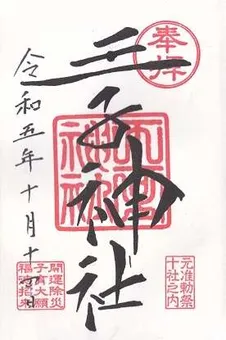 奉拝
王子神社
元准勅祭
十社之内
令和五年十月十日
開運除災
子育大願
福徳招来